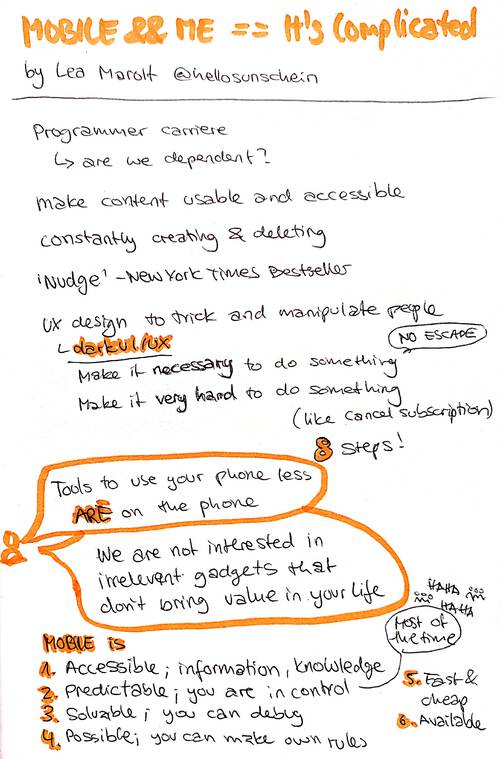 MOBILE && ME == It's Complicated
by Lea Marolt @hellosunschein
Programmer carriere
↳ are we dependent?
make content usable and accessible
constantly creating & deleting
'Nudge' - New York Times Bestseller
UX design to trick and manipulate people
NO ESCAPE
↳ dark UI/UX
Make it necessary to do something
Make it very hard to do something
(like cancel subscription)
8 steps!
Tools to use your phone less
ARE on the phone
We are not interested in
irrelevent gadgets that
don't bring value in your life
HAHA
HAHA
Most of
the time
MOBILE is
1. Accessible; information, knowledge
2. Predictable; you are in control
3. Solvable; you can debug
4. Possible; you can make own rules
5. Fast &
cheap
6. Available